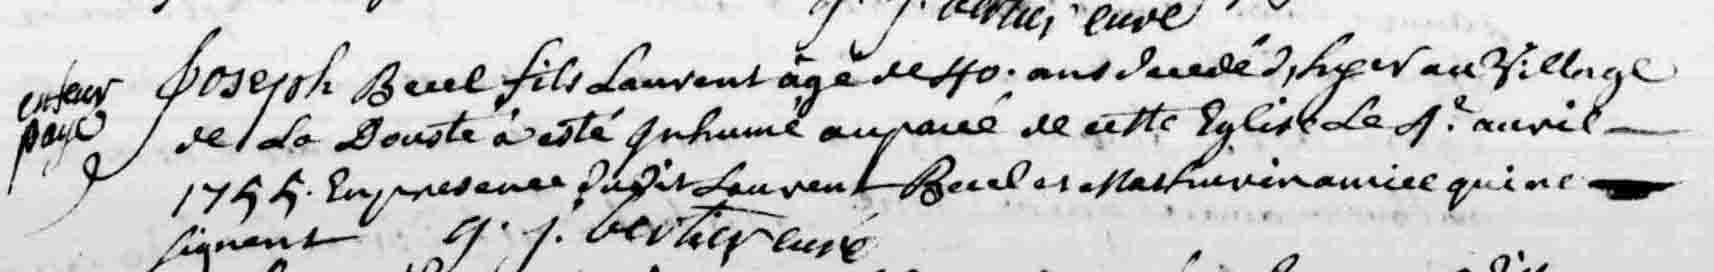 g. j. bertier curé
enfeux payé
Joseph Becel fils Laurent âgé de 40. ans decedé d'hyer au Village
de La Douste à esté Inhumé au pavé de cette Eglise Le 4.e auril
1755. En presence dudit Laurent Becel et Mathurin amice qui ne
signent g. j. bertier curé